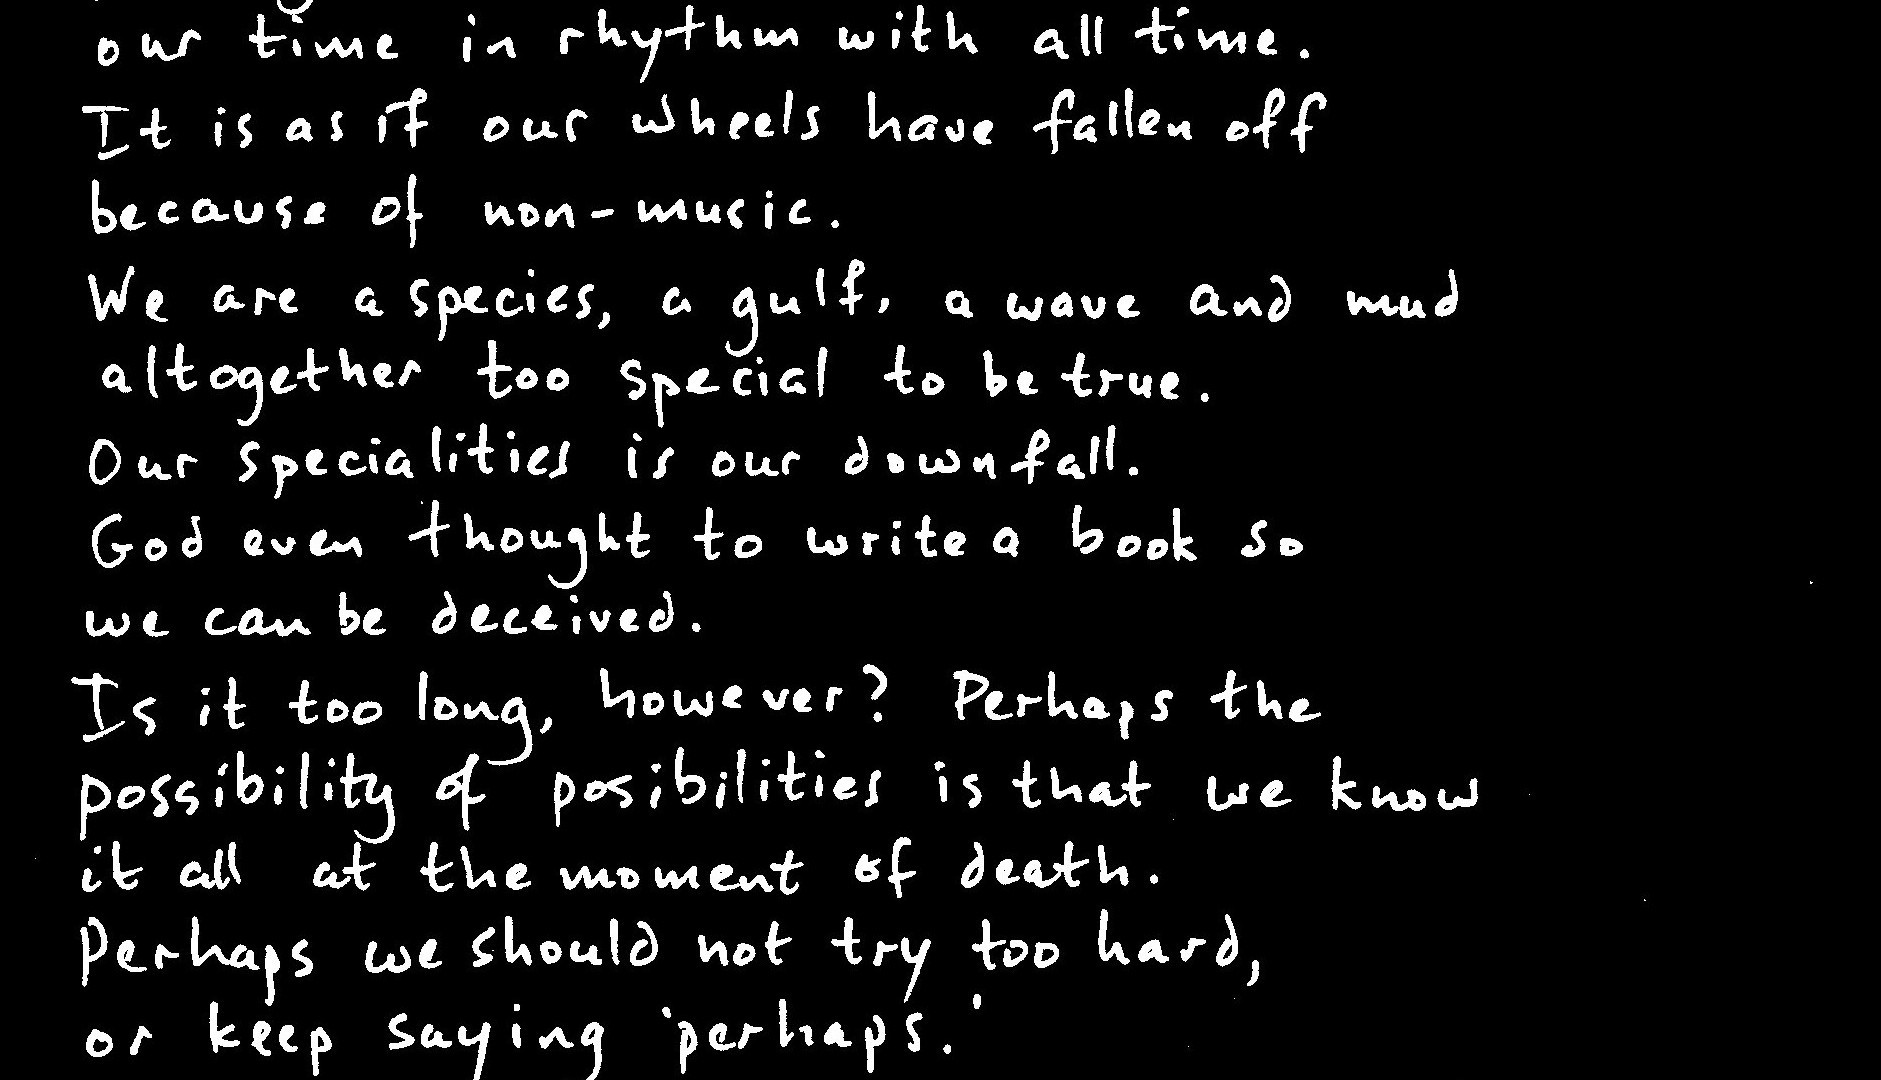 our time in rhythm with all time.
It is as if our wheels have fallen off
because of non-music.
We are a species, a gulf, a wave and mud
altogether too special to be true.
Our specialities is our downfall.
God even thought to write a book so
we can be deceived.
Is it too long, however? Perhaps the
possibility of posibilities is that we know
it all at the moment of death.
Perhaps we should not try too hard,
or keep saying 'perhaps.'